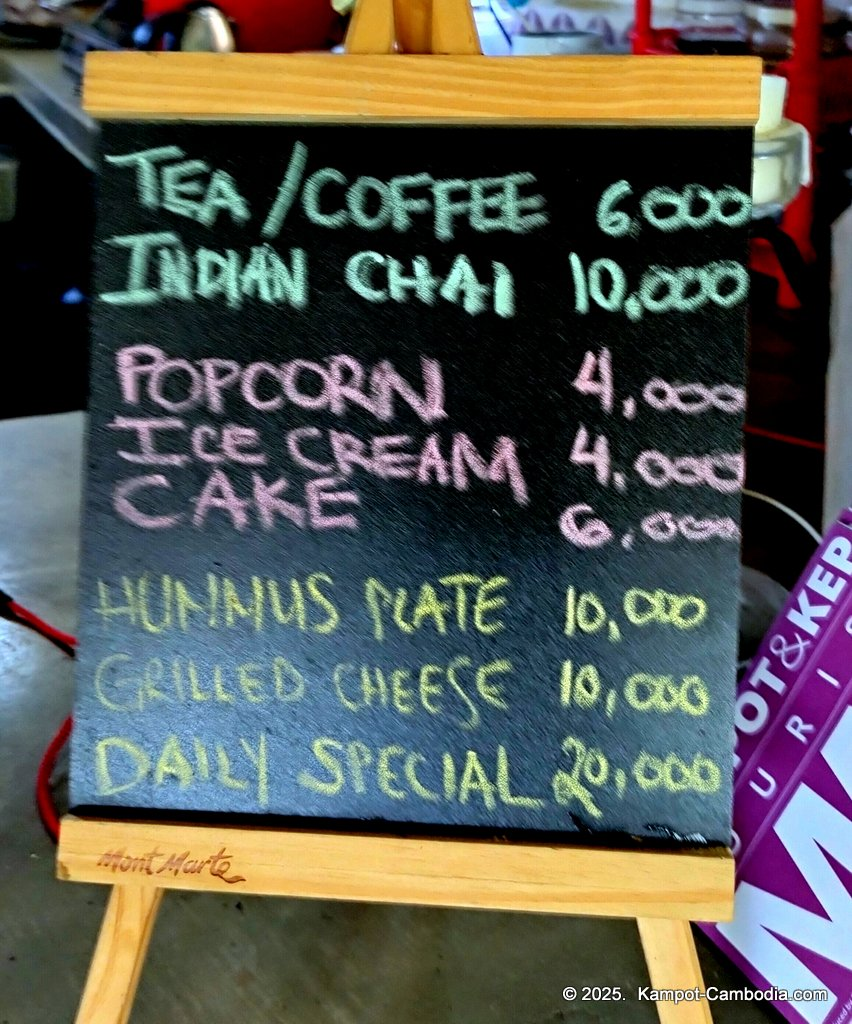 TEA/COFFEE 6,000
INDIAN CHAI 10,000
POPCORN 4,000
ICE CREAM 4,000
CAKE 6,000
HUMMUS PLATE 10,000
GRILLED CHEESE 10,000
DAILY SPECIAL 20,000
Mont Marte
POT & KEP
OURI
M
© 2025. Kampot-Cambodia.com